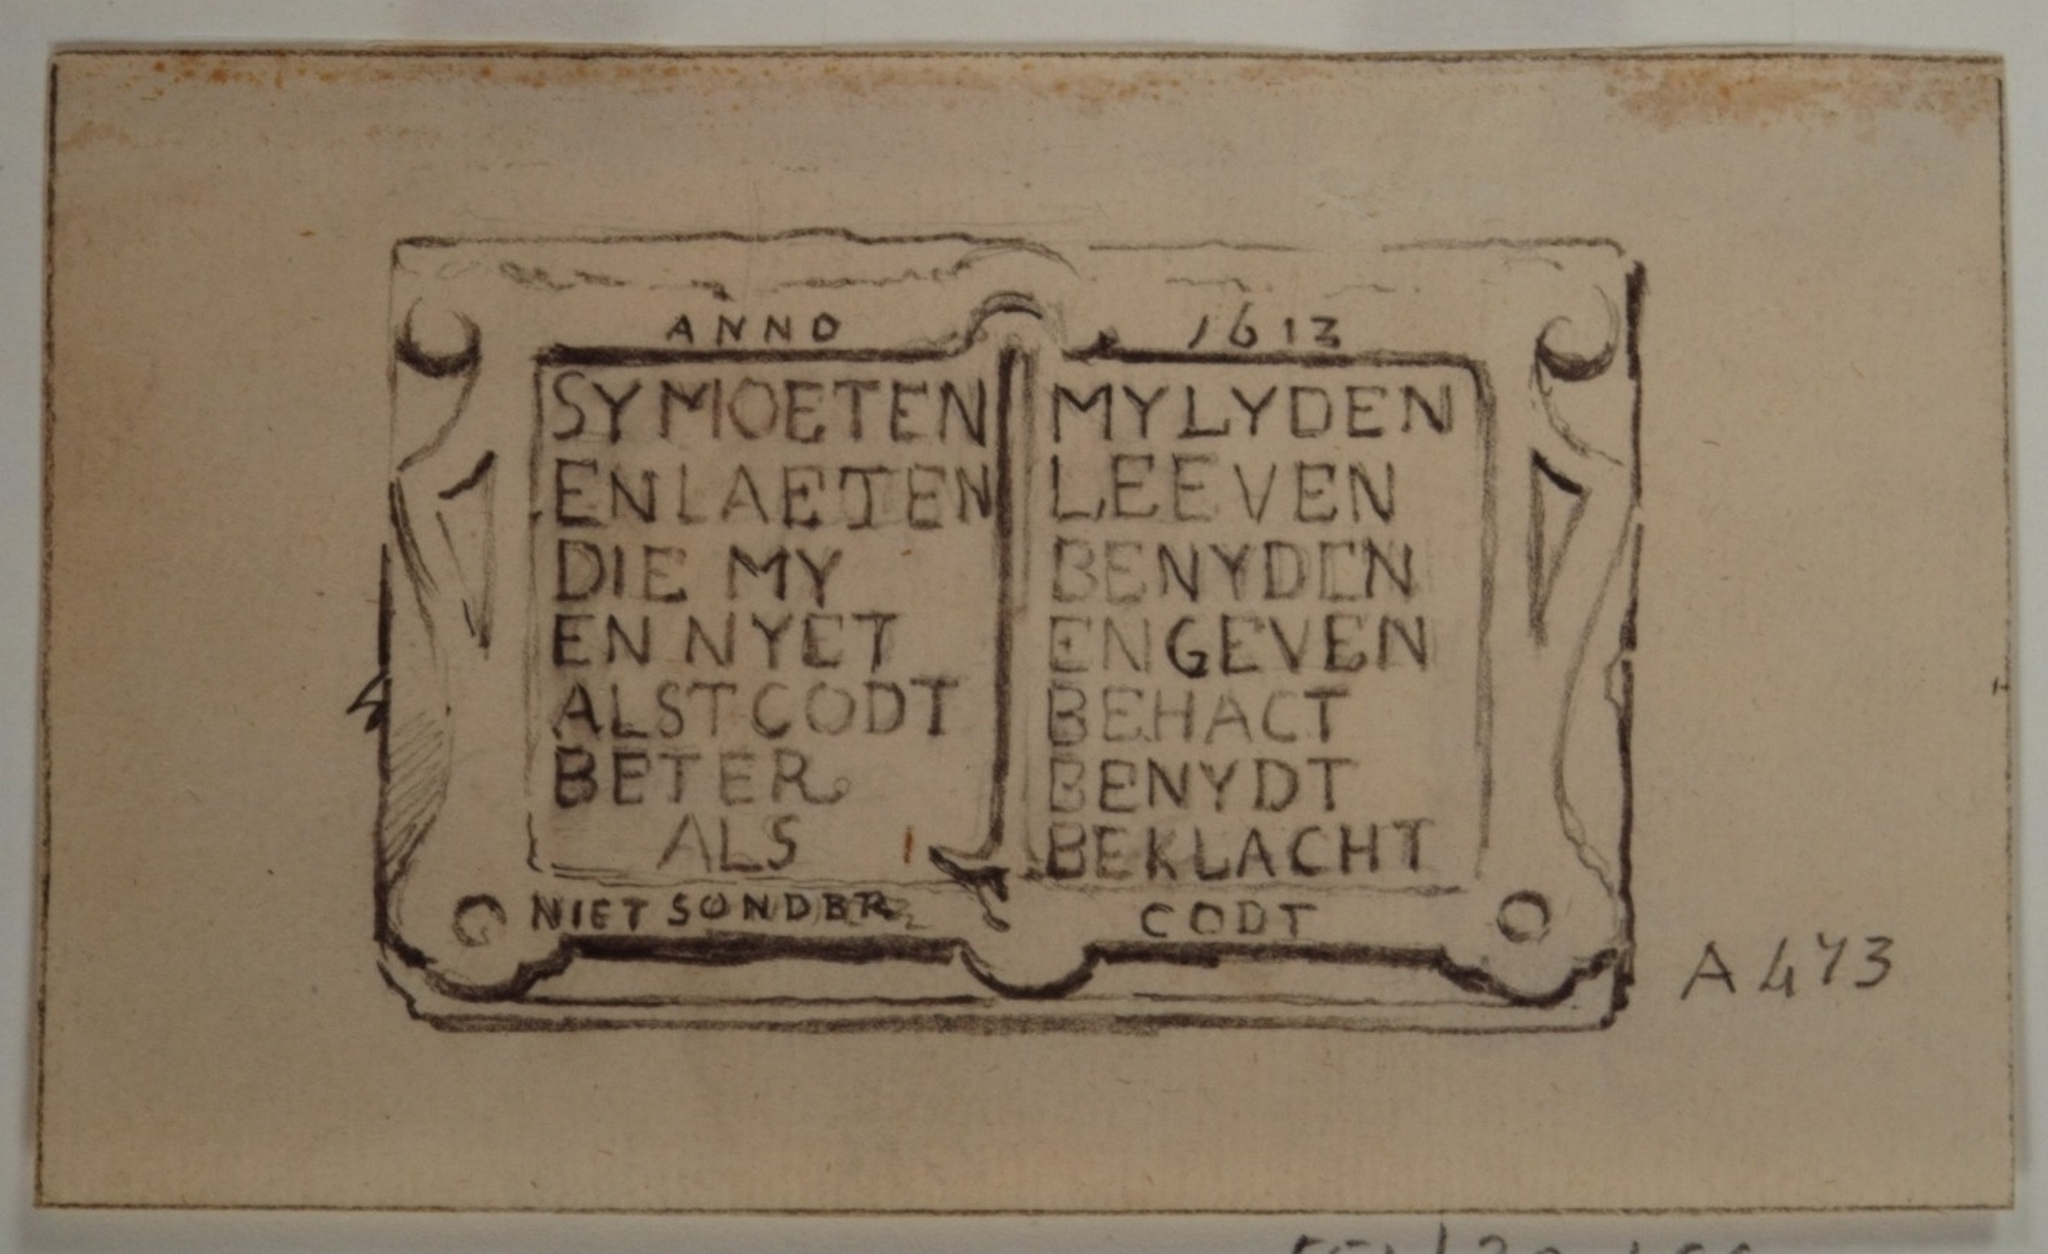 ANNO 1613
SY MOETEN MY LYDEN
EN LAETEN LEEVEN
DIE MY BENYDEN
EN NYET EN GEVEN
ALST CODT BEHACT
BETER BENYDT
ALS BEKLACHT
NIET SONDER CODT
A 473